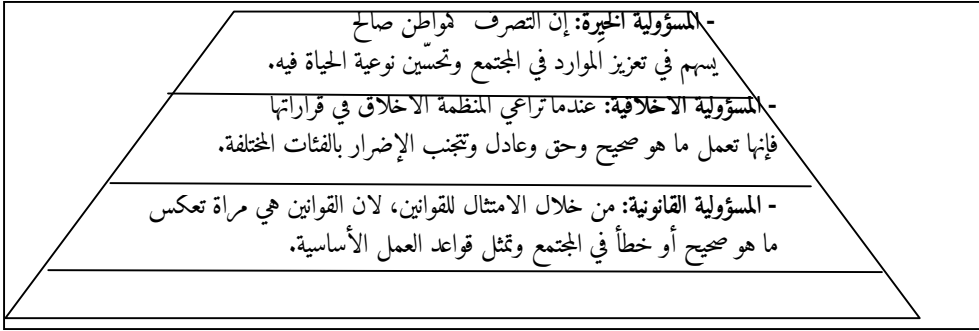 - المسؤولية الخيِرة: إن التصرف كمواطن صالح
يسهم في تعزيز الموارد في المجتمع وتحسّين نوعية الحياة فيه.
- المسؤولية الاخلاقية: عندما تراعي المنظمة الاخلاق في قراراتها
فإنها تعمل ما هو صحيح وحق وعادل وتتجنب الإضرار بالفئات المختلفة.
- المسؤولية القانونية: من خلال الامتثال للقوانين، لان القوانين هي مراة تعكس
ما هو صحيح أو خطأ في المجتمع وتمثل قواعد العمل الأساسية.